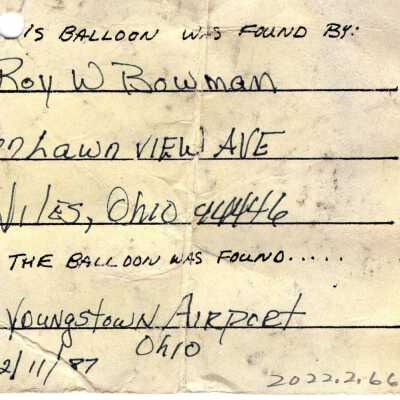 IS BALLOON WAS FOUND BY:
Roy W Bowman
Lawn VIEW AVE
Niles, Ohio 44446
THE BALLOON WAS FOUND.....
Youngstown Airport
Ohio
2/11/87
2022.2.66